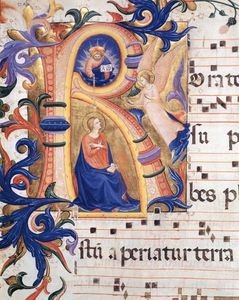 Rorate
su p
bes p
stū aperiatur terra